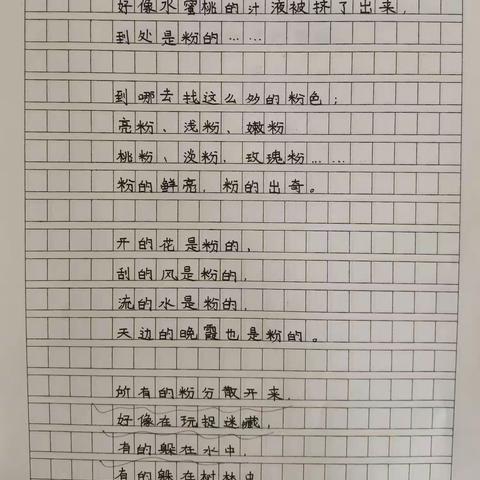 好像水蜜桃的汁液被挤了出来，
到处是粉的……
到哪去找这么多的粉色；
亮粉、浅粉、嫩粉
桃粉、淡粉，玫瑰粉……
粉的鲜亮，粉的出奇。
开的花是粉的，
刮的风是粉的，
流的水是粉的，
天边的晚霞也是粉的。
所有的粉分散开来，
好像在玩捉迷藏，
有的躲在水中，
有的躲在树林中